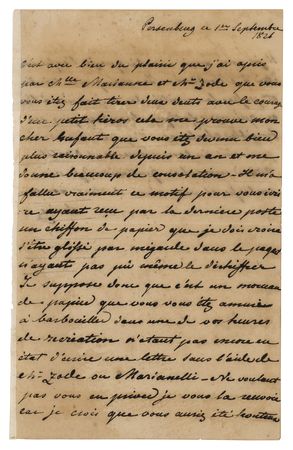 Persenbeug ce 1er Septembre
1826
C'est avec bien du plaisir que j'ai apris
par Mlle Marianne et Mr. Zode que vous
vous étez fait tirer deux dents avec le courage
d'un petit héros cela me prouve mon
cher Enfant que vous étez devenu bien
plus raisonnable depuis un an et me
donne beaucoup de consolation - Il m'a
fallu vraiment ce motif pour vous ecri
re ayant reçu par la derniere poste
un chiffon de papier que je dois croire
s'être glissé par mégarde dans le paquet
n'ayant pas pû même le déchiffrer
Je suppose donc que c'est un morceau
de papier que vous vous étez amusé
à barbouiller dans une de vos heures
de recréation n'etant pas encore en
état d'écrire une lettre sans l'aide de
Mr. Zode ou Marianelli - Ne voulant
pas vous en priver je vous la renvoie
car je crois que vous auriez été honteux